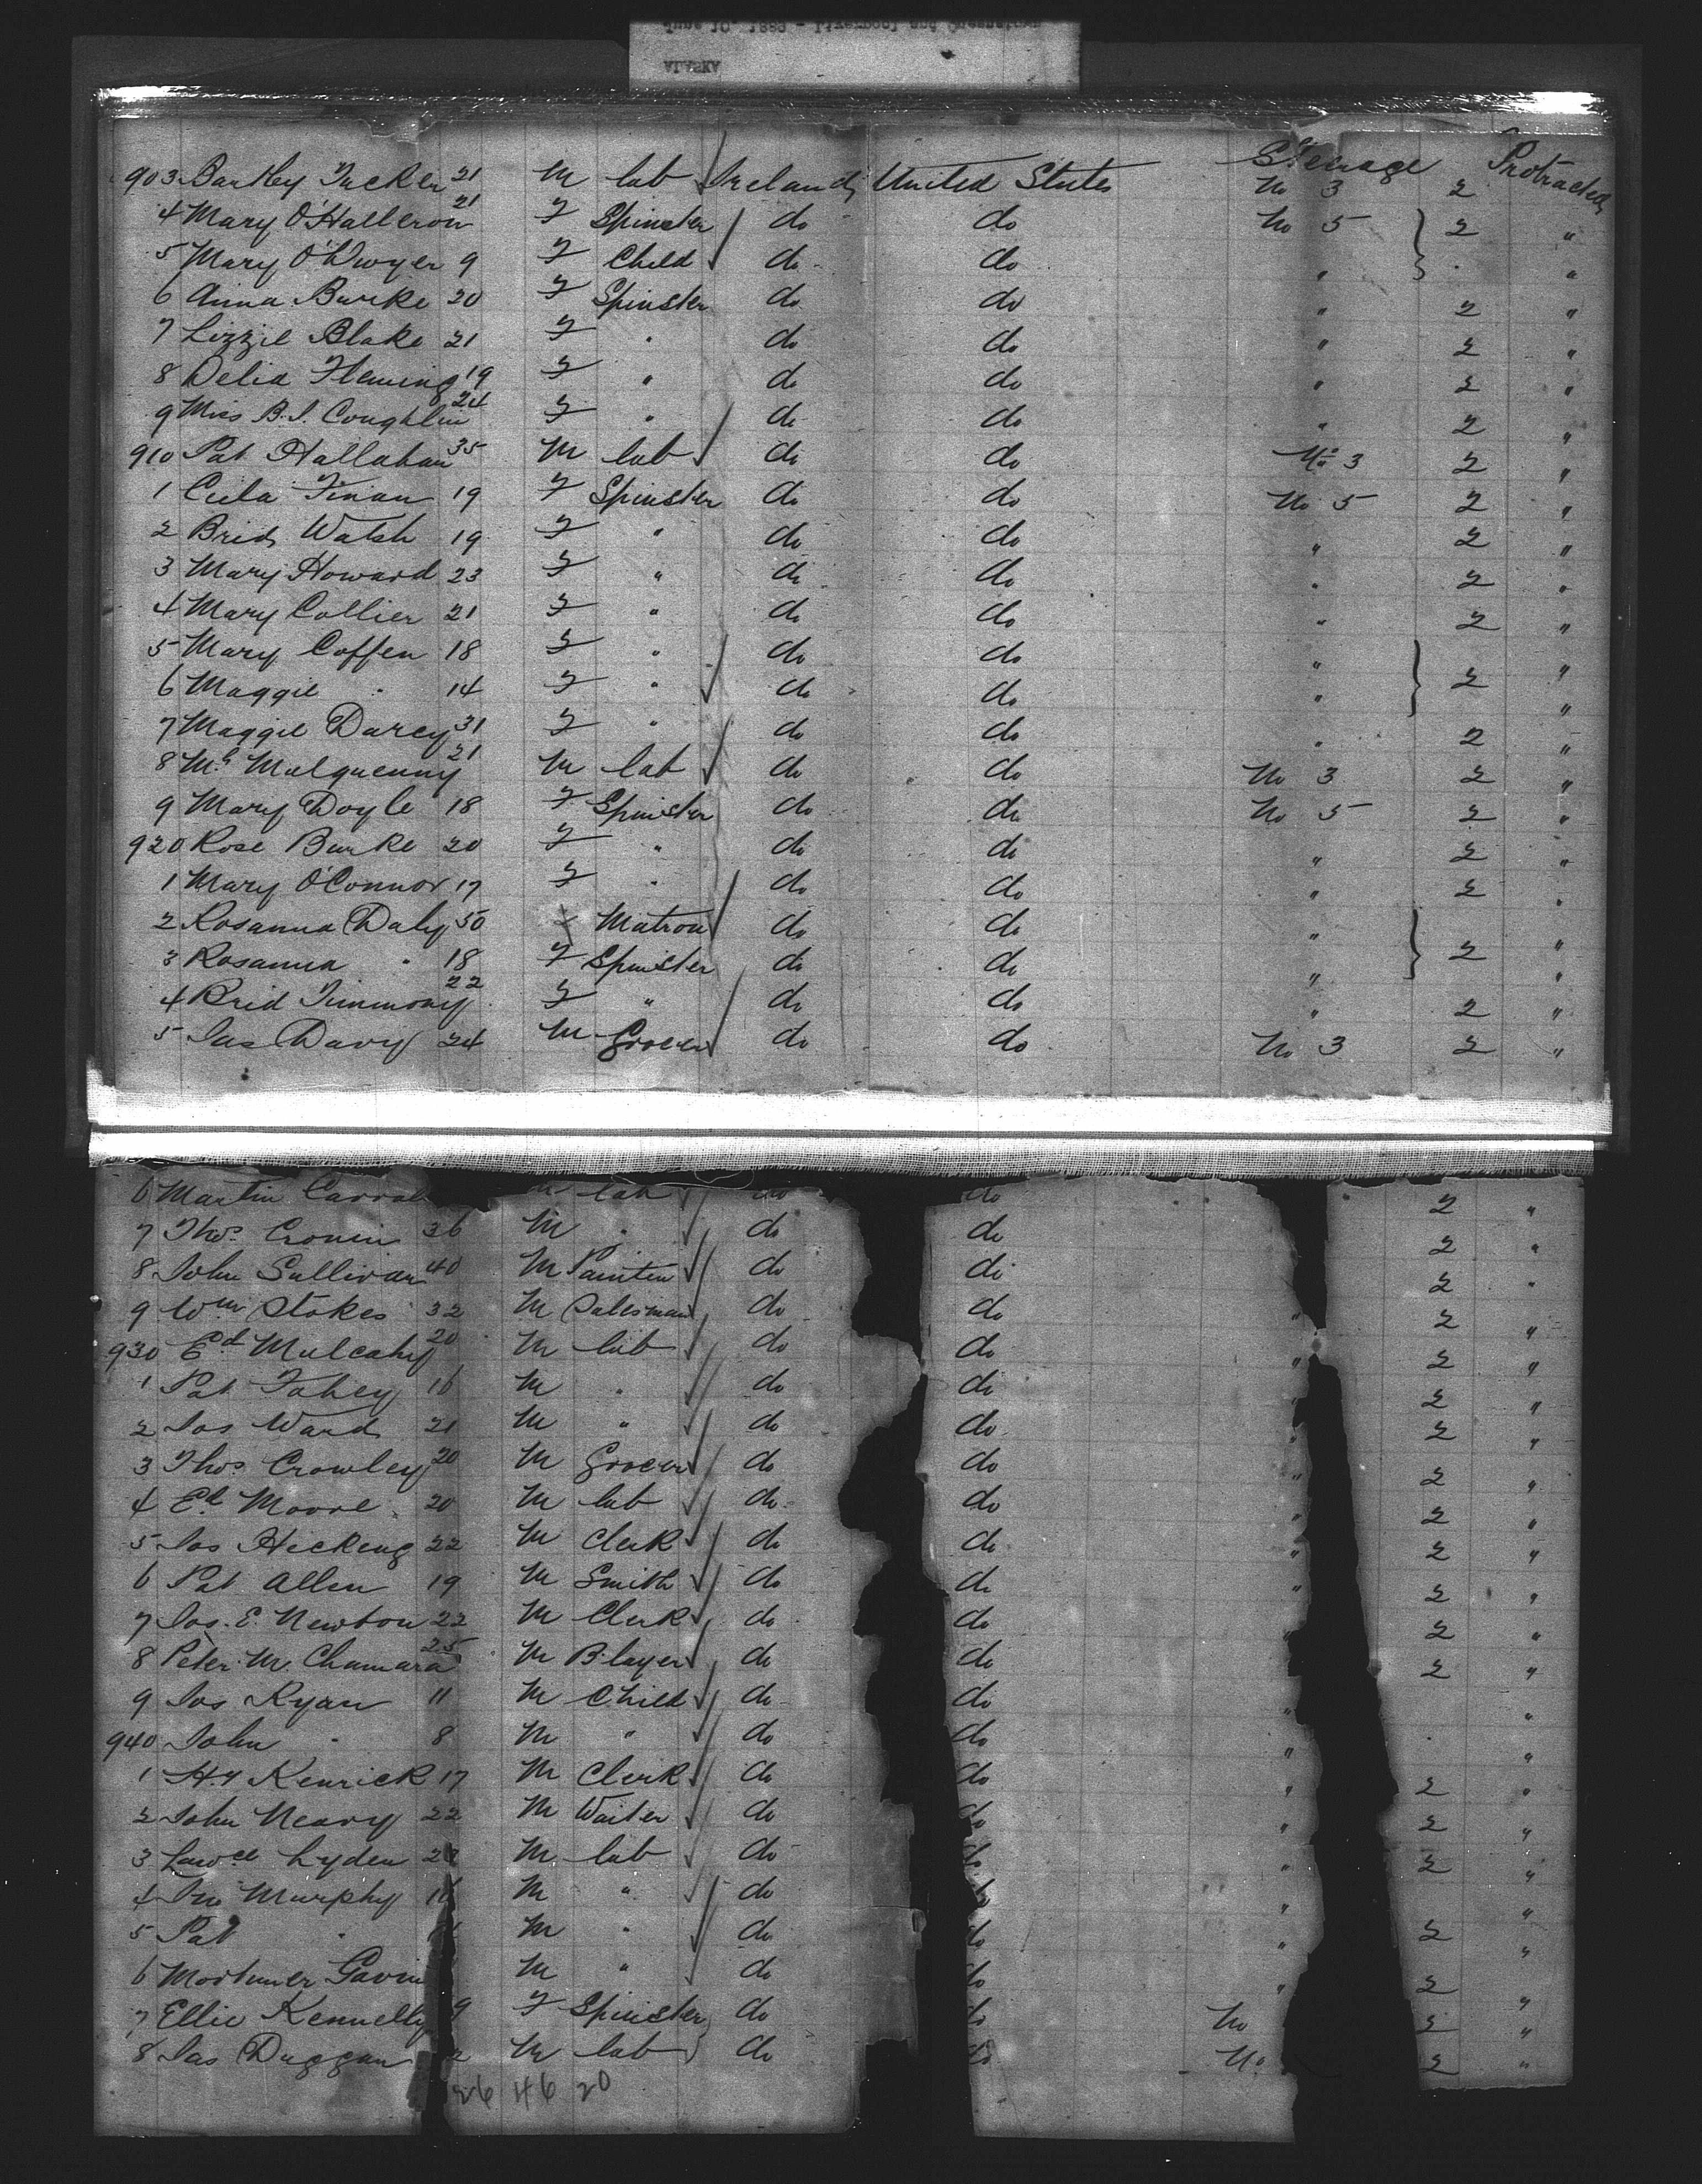 June 10, 1889 - Liverpool and Queenstown
ALASKA
Steerage
903 Bartley Tucker 21 M lab Ireland United States No 3 2 Protracted
4 Mary O'Halleron 21 F Spinster do do No 5 2 "
5 Mary O'Dwyer 9 F Child do do " "
6 Anna Burke 20 F Spinster do do " 2 "
7 Lizzie Blake 21 F " do do " 2 "
8 Delia Fleming 19 F " do do " 2 "
9 Miss B.J. Coughlin 24 F " do do " 2 "
910 Pat Hallahan 35 M lab do do No 3 2 "
1 Ceila Finan 19 F Spinster do do No 5 2 "
2 Brid Walsh 19 F " do do " 2 "
3 Mary Howard 23 F " do do " 2 "
4 Mary Collier 21 F " do do " 2 "
5 Mary Coffen 18 F " do do " 2 "
6 Maggie " 14 F " do do " "
7 Maggie Darcy 31 F " do do " 2 "
8 Ml Mulquenny 21 M lab do do No 3 2 "
9 Mary Doyle 18 F Spinster do do No 5 2 "
920 Rose Burke 20 F " do do " 2 "
1 Mary O'Connor 17 F " do do " 2 "
2 Rosanna Daly 50 F Matron do do " 2 "
3 Rosanna " 18 F Spinster do do " "
4 Brid Timmony 22 F " do do " 2 "
5 Jas Davy 24 M Grocer do do No 3 2 "
6 Martin lab do do 2 "
7 Thos. Cronin 36 M " do do 2 "
8 John Sullivan 40 M Painter do do 2 "
9 Wm Stokes 32 M Salesman do do " 2 "
930 Ed Mulcahy 20 M lab do do " 2 "
1 Pat Fahey 16 M " do do " 2 "
2 Jos Ward 21 M " do do " 2 "
3 Thos Crowley 20 M Grocer do do " 2 "
4 Ed Moore 20 M lab do do " 2 "
5 Jos Hickeng 22 M Clerk do do " 2 "
6 Pat Allen 19 M Smith do do " 2 "
7 Jos. E. Newton 22 M Clerk do do " 2 "
8 Peter McNamara 25 M B.layer do do 2 "
9 Jos Ryan 11 M Child do do " "
940 John " 8 M " do do " "
1 Hy Kenrick 17 M Clerk do do " 2 "
2 John Neary 22 M Waiter do do " 2 "
3 Lawce Lyden M lab do do " 2 "
4 Jno Murphy M " do " "
5 Pat " M " do do " 2 "
6 Mortimer Gavin M " do do " 2 "
7 Ellie Kennelly 9 F Spinster do do No 2 "
8 Jas Duggan 2 M lab do do No 2 "
26 46 20